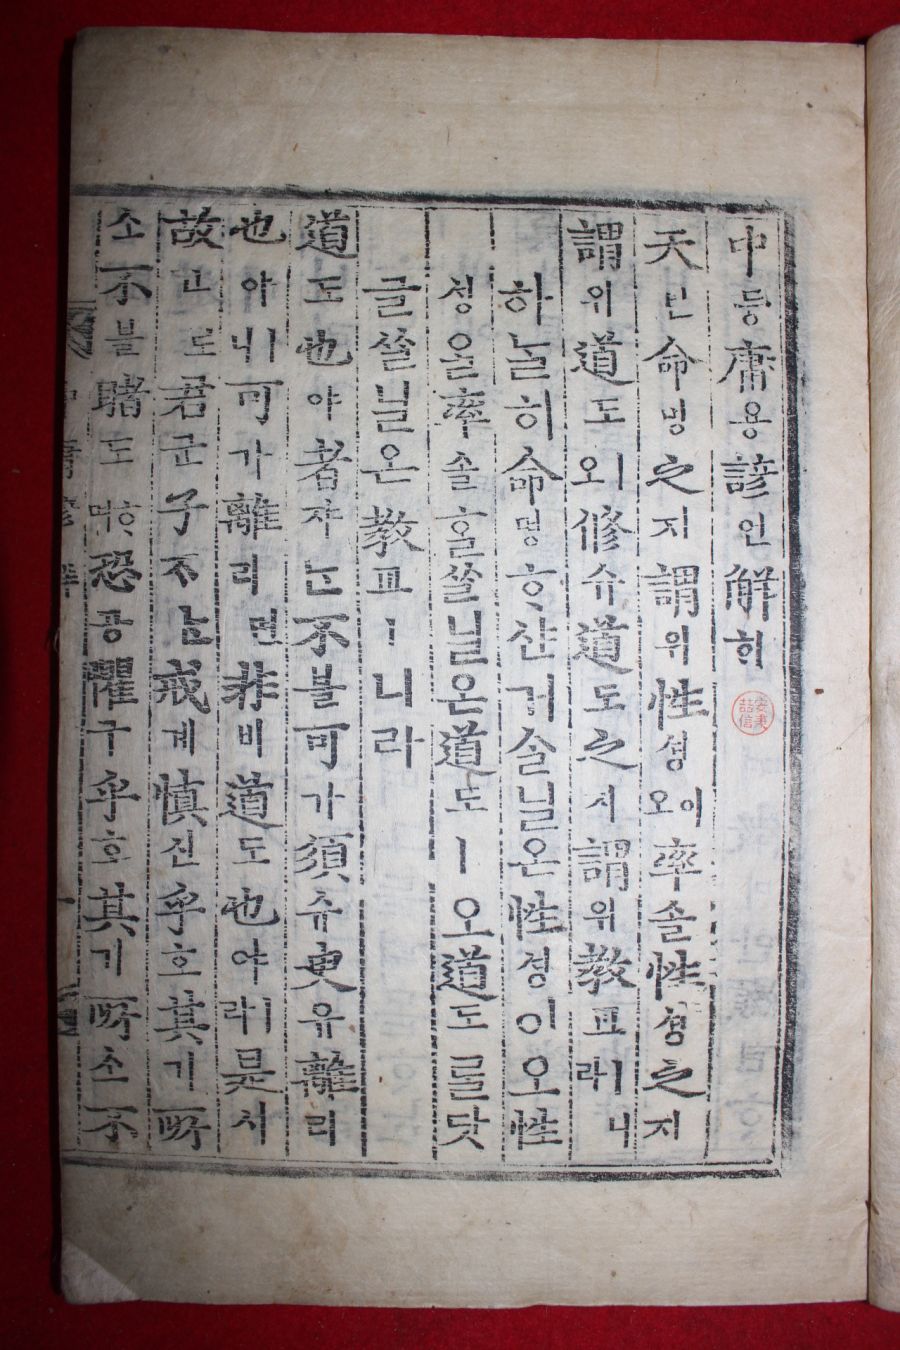 中듕庸용諺언解ᄒᆡ
天텬命명之지謂위性셩이오率솔性셩之지
謂위道도ㅣ오修슈道도之지謂위教교ㅣ니라
하ᄂᆞᆯ히命명ᄒᆞ샨거슬닐온性셩이오性
셩을率솔홀쓸닐온道도ㅣ오道도를닷
글쓸닐온教교ㅣ니라
道도也야者쟈ᄂᆞᆫ不블可가須슈臾유離리
也야ㅣ니可가離리면非비道도也야ㅣ라是시
故고로君군子ᄌᆞᄂᆞᆫ戒계愼신乎호其기所
소不블睹도ᄒᆞ며恐공懼구乎호其기所소不